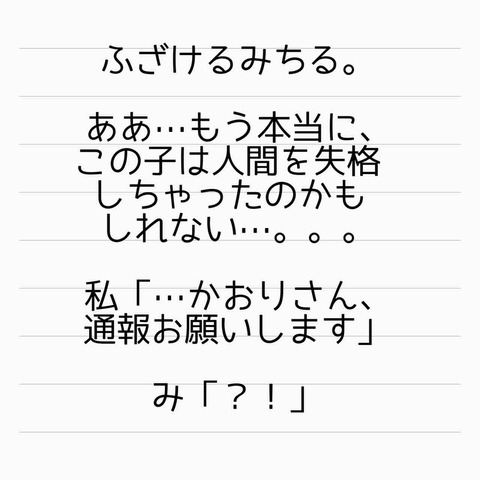 ふざけるみちる。
ああ…もう本当に、
この子は人間を失格
しちゃったのかも
しれない…。。。
私「…かおりさん、
通報お願いします」
み「？！」